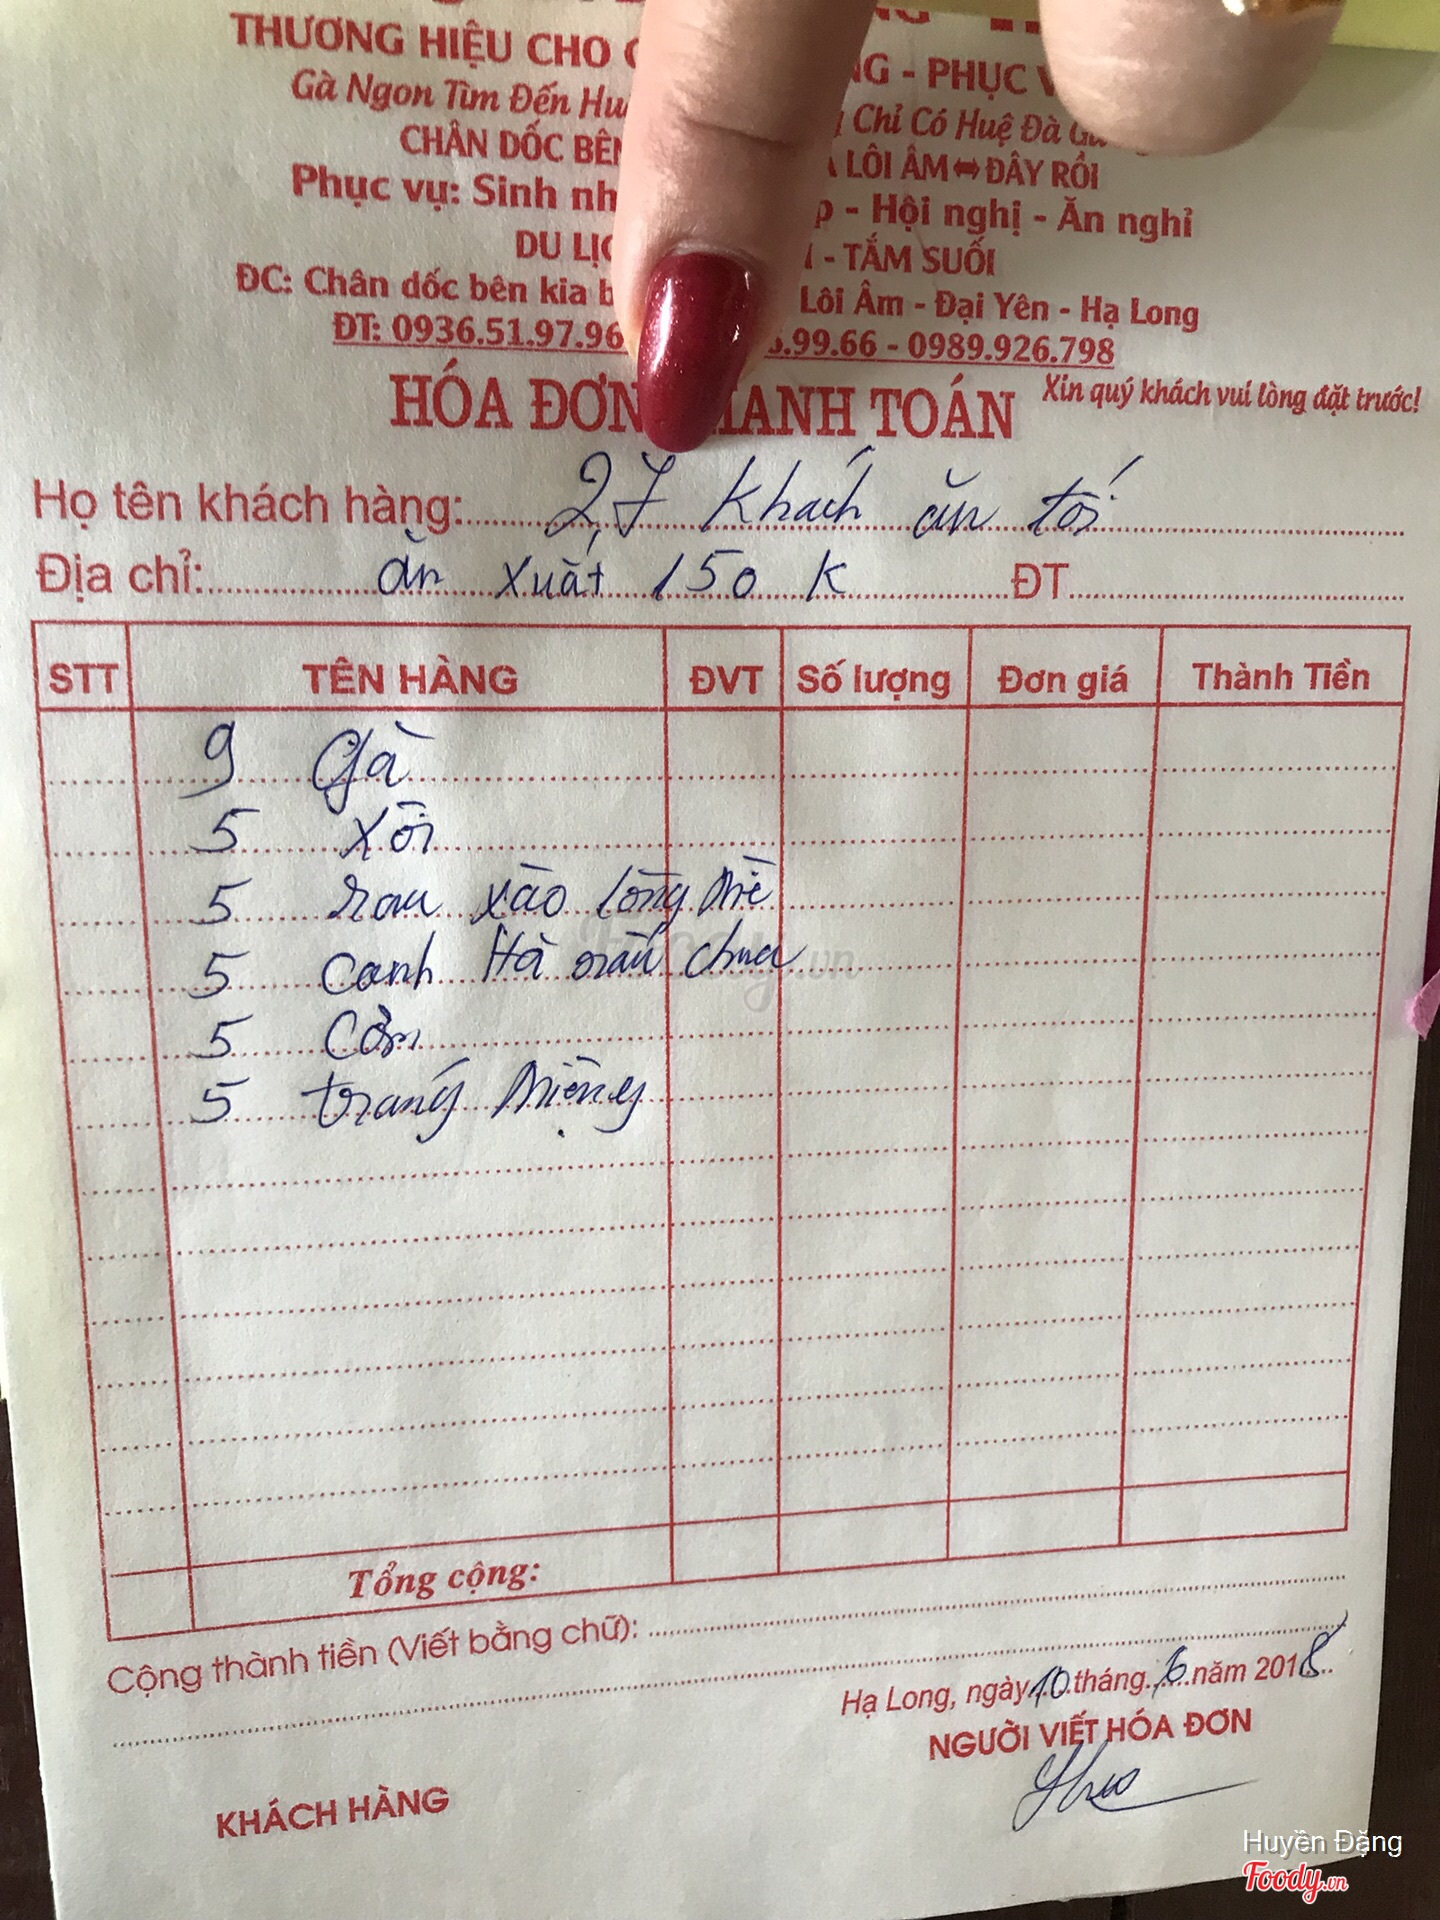 THƯƠNG HIỆU CHO NG - PHỤC
Gà Ngon Tìm Đến Chỉ Có Huệ Đà
CHÂN DỐC BÊN LÔI ÂM ⬌ ĐÂY RỒI
Phục vụ: Sinh - Hội nghị - Ăn nghỉ
DU - TẮM SUỐI
ĐC: Chân dốc bên kia Lôi Âm - Đại Yên - Hạ Long
ĐT: 0936.51.97.96 .99.66 - 0989.926.798
HÓA ĐƠN THANH TOÁN Xin quý khách vui lòng đặt trước!
Họ tên khách hàng: 27 khách ăn tối
Địa chỉ: ăn xuất 150 K ĐT
STT TÊN HÀNG ĐVT Số lượng Đơn giá Thành Tiền
9 Gà
5 xôi
5 rau xào lòng mề
5 canh Hà nấu chua
5 Cơm
5 tráng miệng
Tổng cộng:
Cộng thành tiền (Viết bằng chữ):
Hạ Long, ngày 10 tháng 6 năm 2018
NGƯỜI VIẾT HÓA ĐƠN
KHÁCH HÀNG
Huyền Đặng
Foody.vn